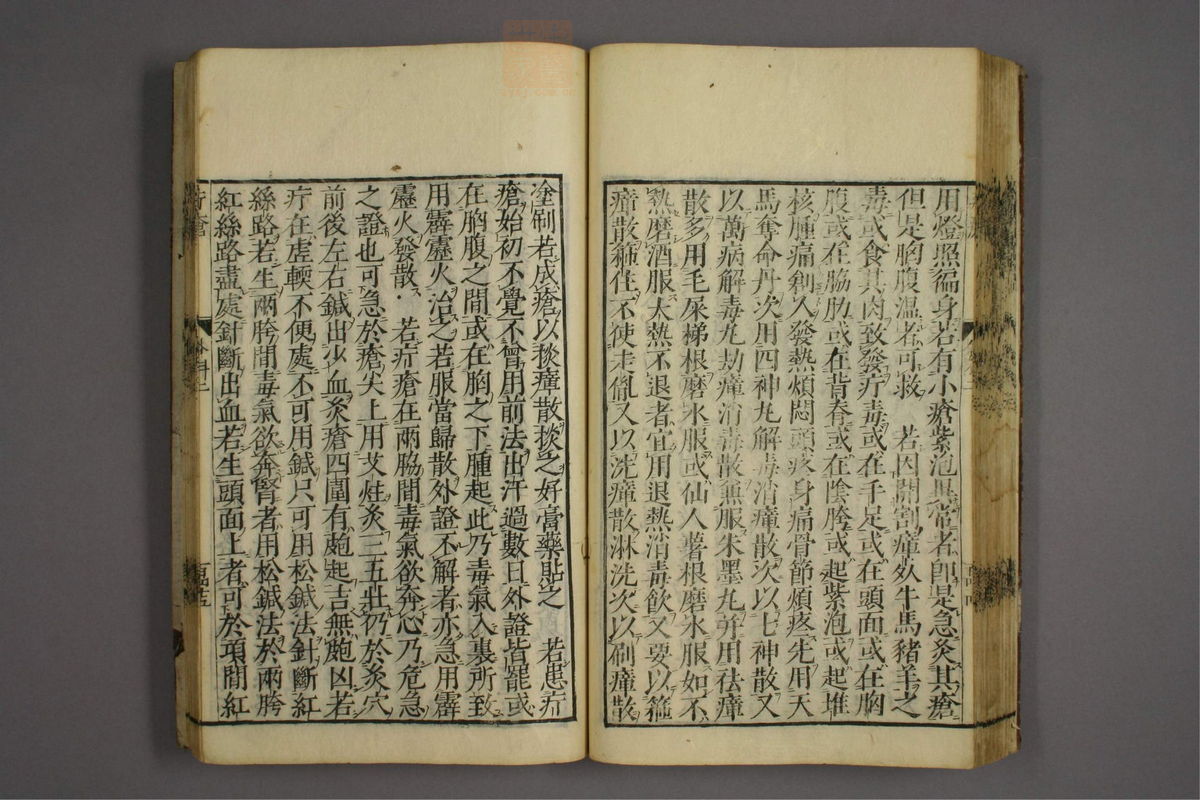 用燈照徧身若有小瘡紫泡異常者即是急灸其瘡
但是胸腹溫者可救　若因開割瘴死牛馬豬羊之
毒或食其肉致發疔毒或在手足或在頭面或在胸
腹或在脇肋或在背脊或在陰胯或起紫泡或起堆
核腫痛創入發熱煩悶頭疼身痛骨節煩疼先用天
馬奪命丹次用四神丸解毒消瘴散次以七神散又
以萬病解毒丸劫瘴消毒散無服朱墨丸并用祛瘴
散多用毛屎梯根磨水服或仙人薯根磨水服如不
熱磨酒服大熱不退者宜用退熱消毒飲又要以箍
瘴散箍住不使走胤又以洗瘴散淋洗次以刷瘴散
塗刷若成瘡以掞瘴散掞之好膏藥貼之　若患疔
瘡始初不覺不曾用前法出汗過數日外證皆罷或
在胸腹之間或在胸之下腫起此乃毒氣入裏所致
用霹靂火治之若服當歸散外證不解者亦急用霹
靂火發散．若疔瘡在兩脇間毒氣欲奔心乃危急
之證也可急於瘡尖上用艾炷灸三五壯仍於灸穴
前後左右鍼出少血灸瘡四圍有皰起吉無皰凶若
疔在虛軟不便處不可用鍼只可用松鍼法針斷紅
絲路若生兩胯間毒氣欲奔腎者用松鍼法於兩胯
紅絲路盡處針斷出血若生頭面上者可於項間紅